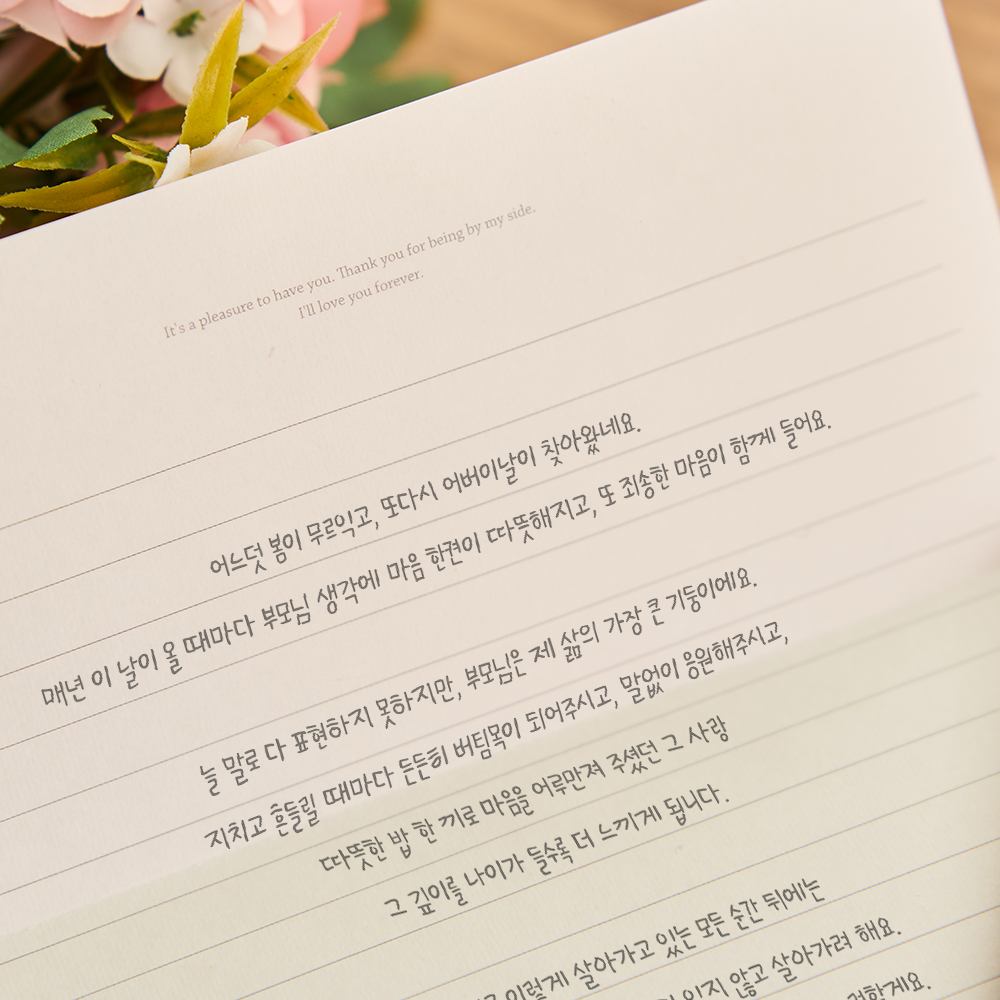 It's a pleasure to have you. Thank you for being by my side.
I'll love you forever.
어느덧 봄이 무르익고, 또다시 어버이날이 찾아왔네요.
매년 이 날이 올 때마다 부모님 생각에 마음 한켠이 따뜻해지고, 또 죄송한 마음이 함께 들어요.
늘 말로 다 표현하지 못하지만, 부모님은 제 삶의 가장 큰 기둥이에요.
지치고 흔들릴 때마다 든든히 버팀목이 되어주시고, 말없이 응원해주시고,
따뜻한 밥 한 끼로 마음을 어루만져 주셨던 그 사랑
그 깊이를 나이가 들수록 더 느끼게 됩니다.
이렇게 살아가고 있는 모든 순간 뒤에는
잊지 않고 살아가려 해요.